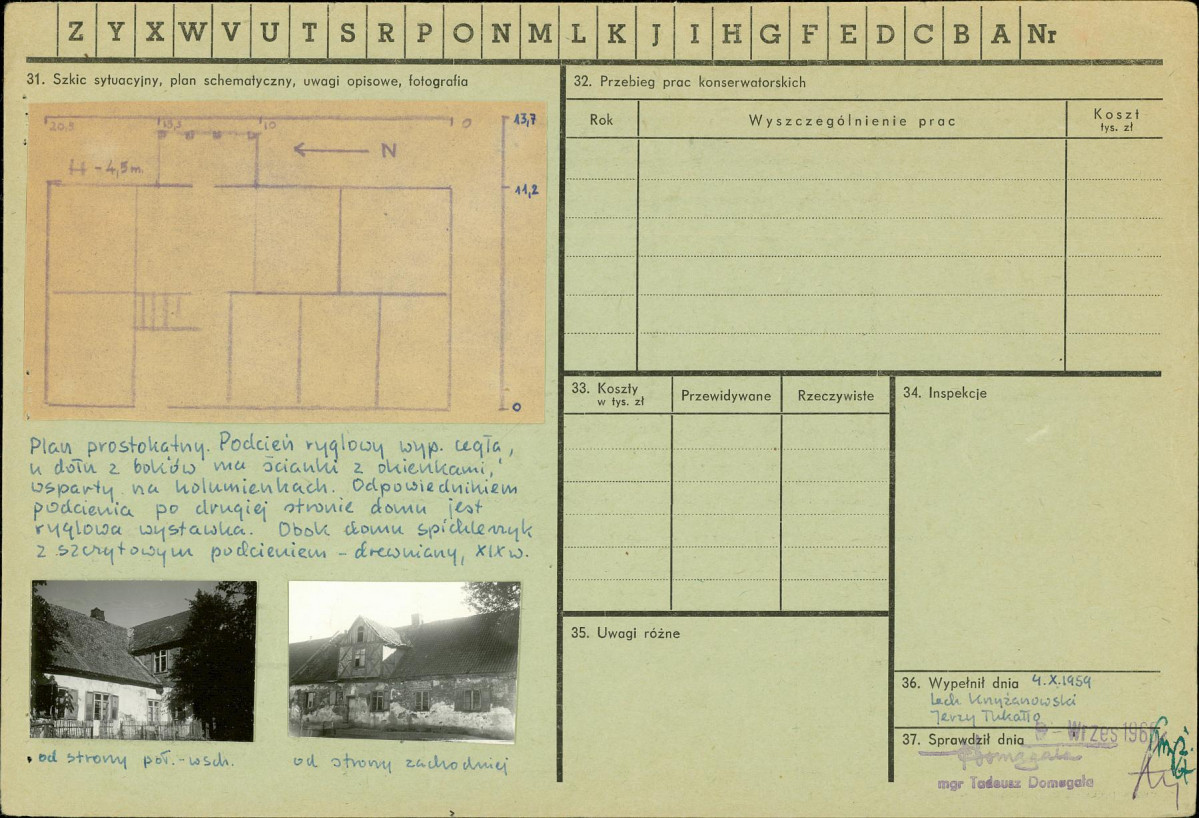 Z Y X W V U T S R P O N M L K J I H G F E D C B A Nr
31. Szkic sytuacyjny, plan schematyczny, uwagi opisowe, fotografia
20,5 15,5 10 0
13,7
N
H - 4,5 m.
11,2
0
Plan prostokątny. Podcień ryglowy wyp. cegłą,
u dołu z boków ma ścianki z okienkami,
wsparty na kolumienkach. Odpowiednikiem
podcienia po drugiej stronie domu jest
ryglowa wystawka. Obok domu spichlerzyk
z szczytowym podcieniem – drewniany, XIX w.
od strony poł.-wsch.
od strony zachodniej
32. Przebieg prac konserwatorskich
Rok
Wyszczególnienie prac
Koszt
tys. zł
33. Koszty
w tys. zł
Przewidywane
Rzeczywiste
34. Inspekcje
35. Uwagi różne
36. Wypełnił dnia 4.X.1959
Lech Krzyżanowski
Jerzy Tukałło
37. Sprawdził dnia - Wrzes
Domagała
mgr Tadeusz Domagała